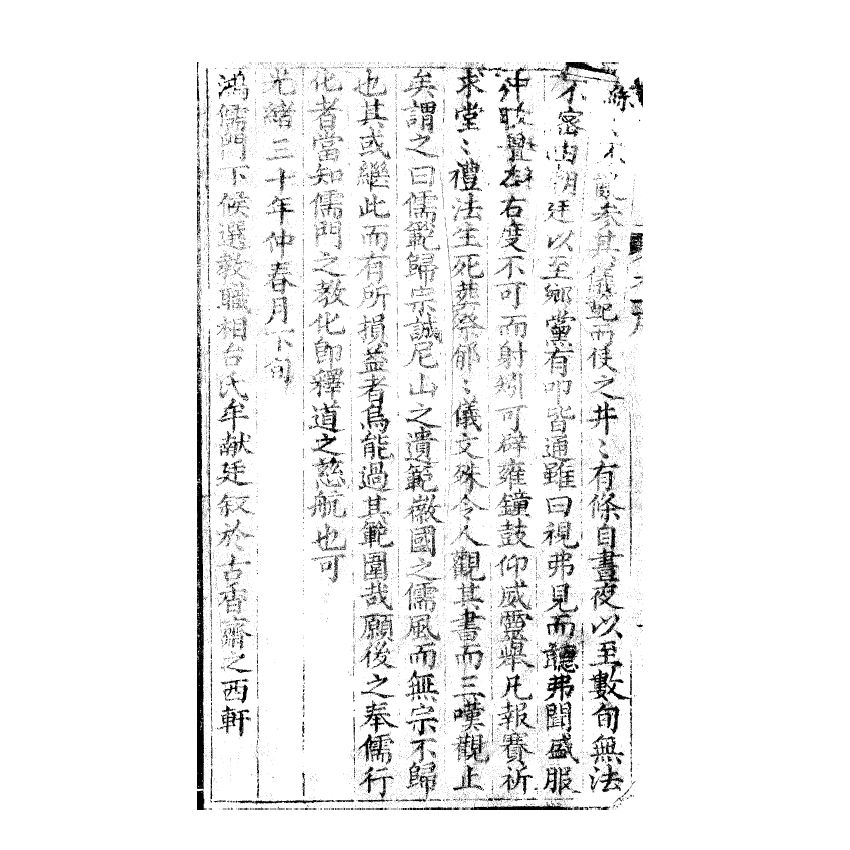 參其儀範而使之井〻有條自晝夜以至數旬無法
不密由朝廷以至鄉黨有叩皆通雖曰視弗見而聽弗聞盛服
右度不可而射矧可辟雍鐘鼓仰威靈舉凡報賽祈
求堂〻禮法生死葬祭郁〻儀文殊令人觀其書而三嘆觀止
矣謂之曰儒範歸宗誠尼山之遺範徽國之儒風而無宗不歸
也其或繼此而有所損益者烏能過其範圍哉願後之奉儒行
化者當知儒門之教化即釋道之慈航也可
光緒三十年仲春月下旬
鴻儒門下候選教職相台氏牟献廷叙於古香齋之西軒